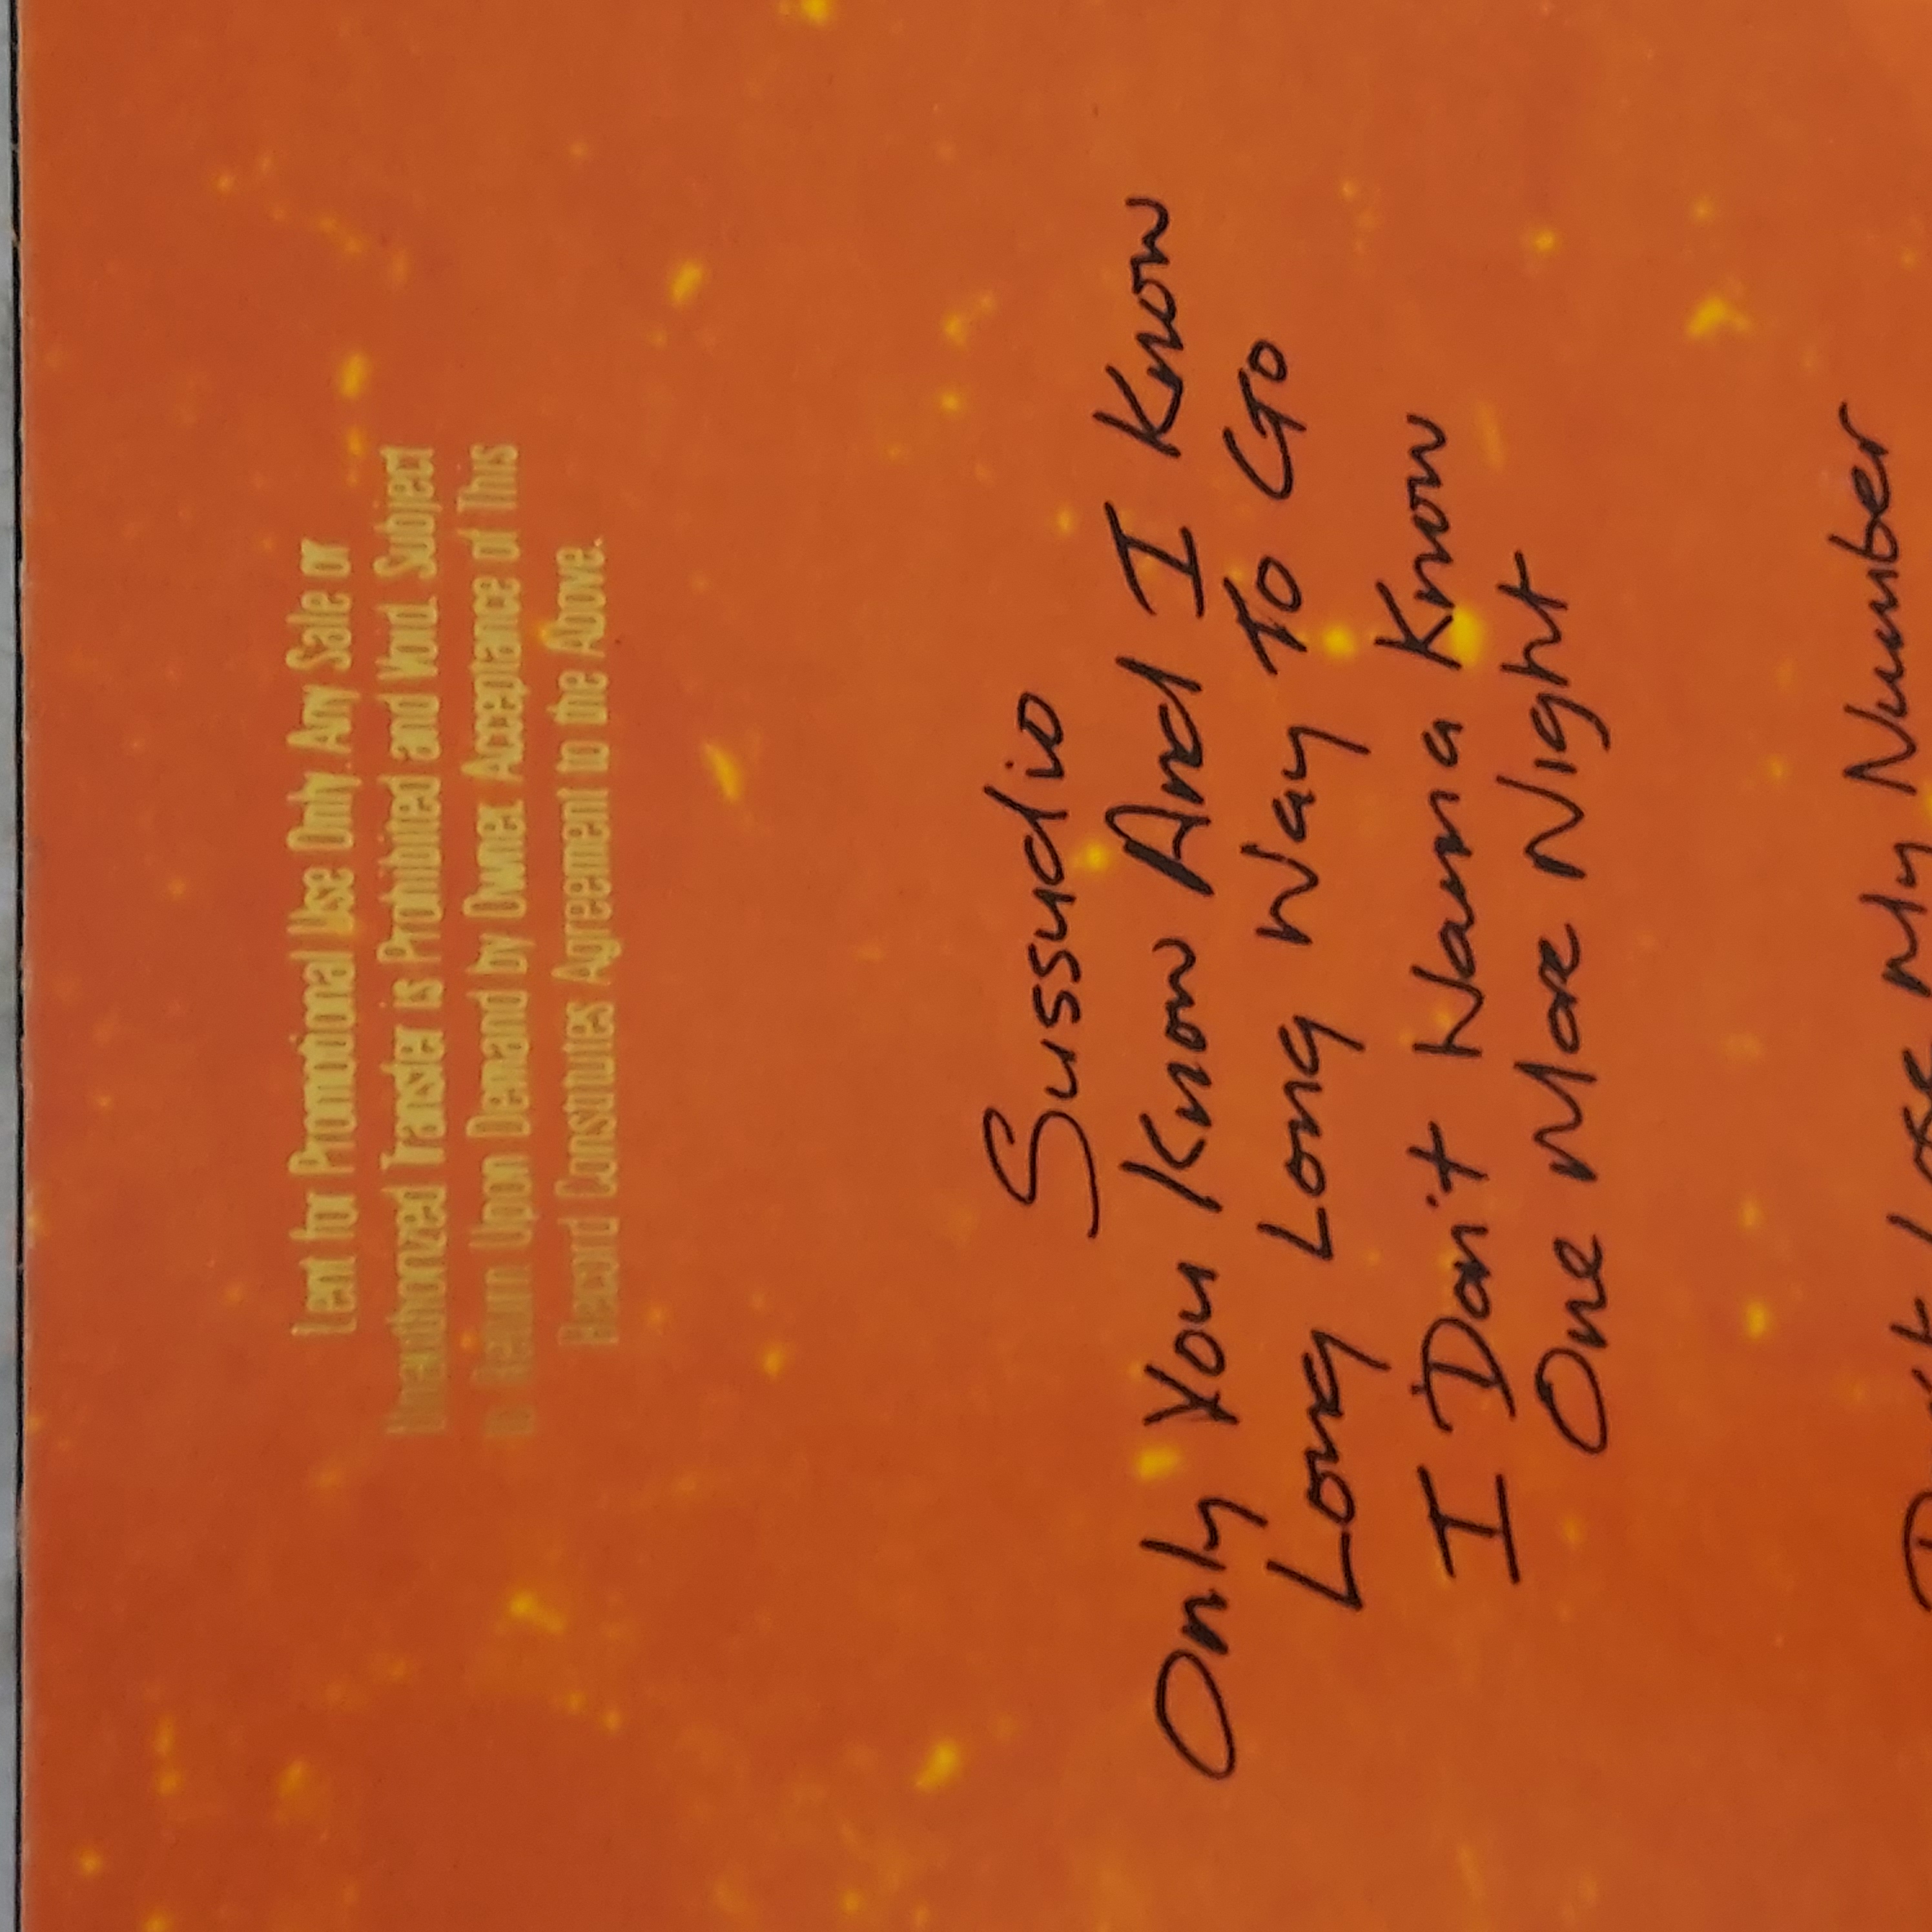 Lent for Promotional Use Only. Any Sale or
Unauthorized Transfer is Prohibited and Void. Subject
to Return Upon Demand by Owner. Acceptance of This
Record Constitutes Agreement to the Above.
Sussudio
Only You Know And I Know
Long Long Way To Go
I Don't Wanna Know
One More Night
Don't Lose My Number